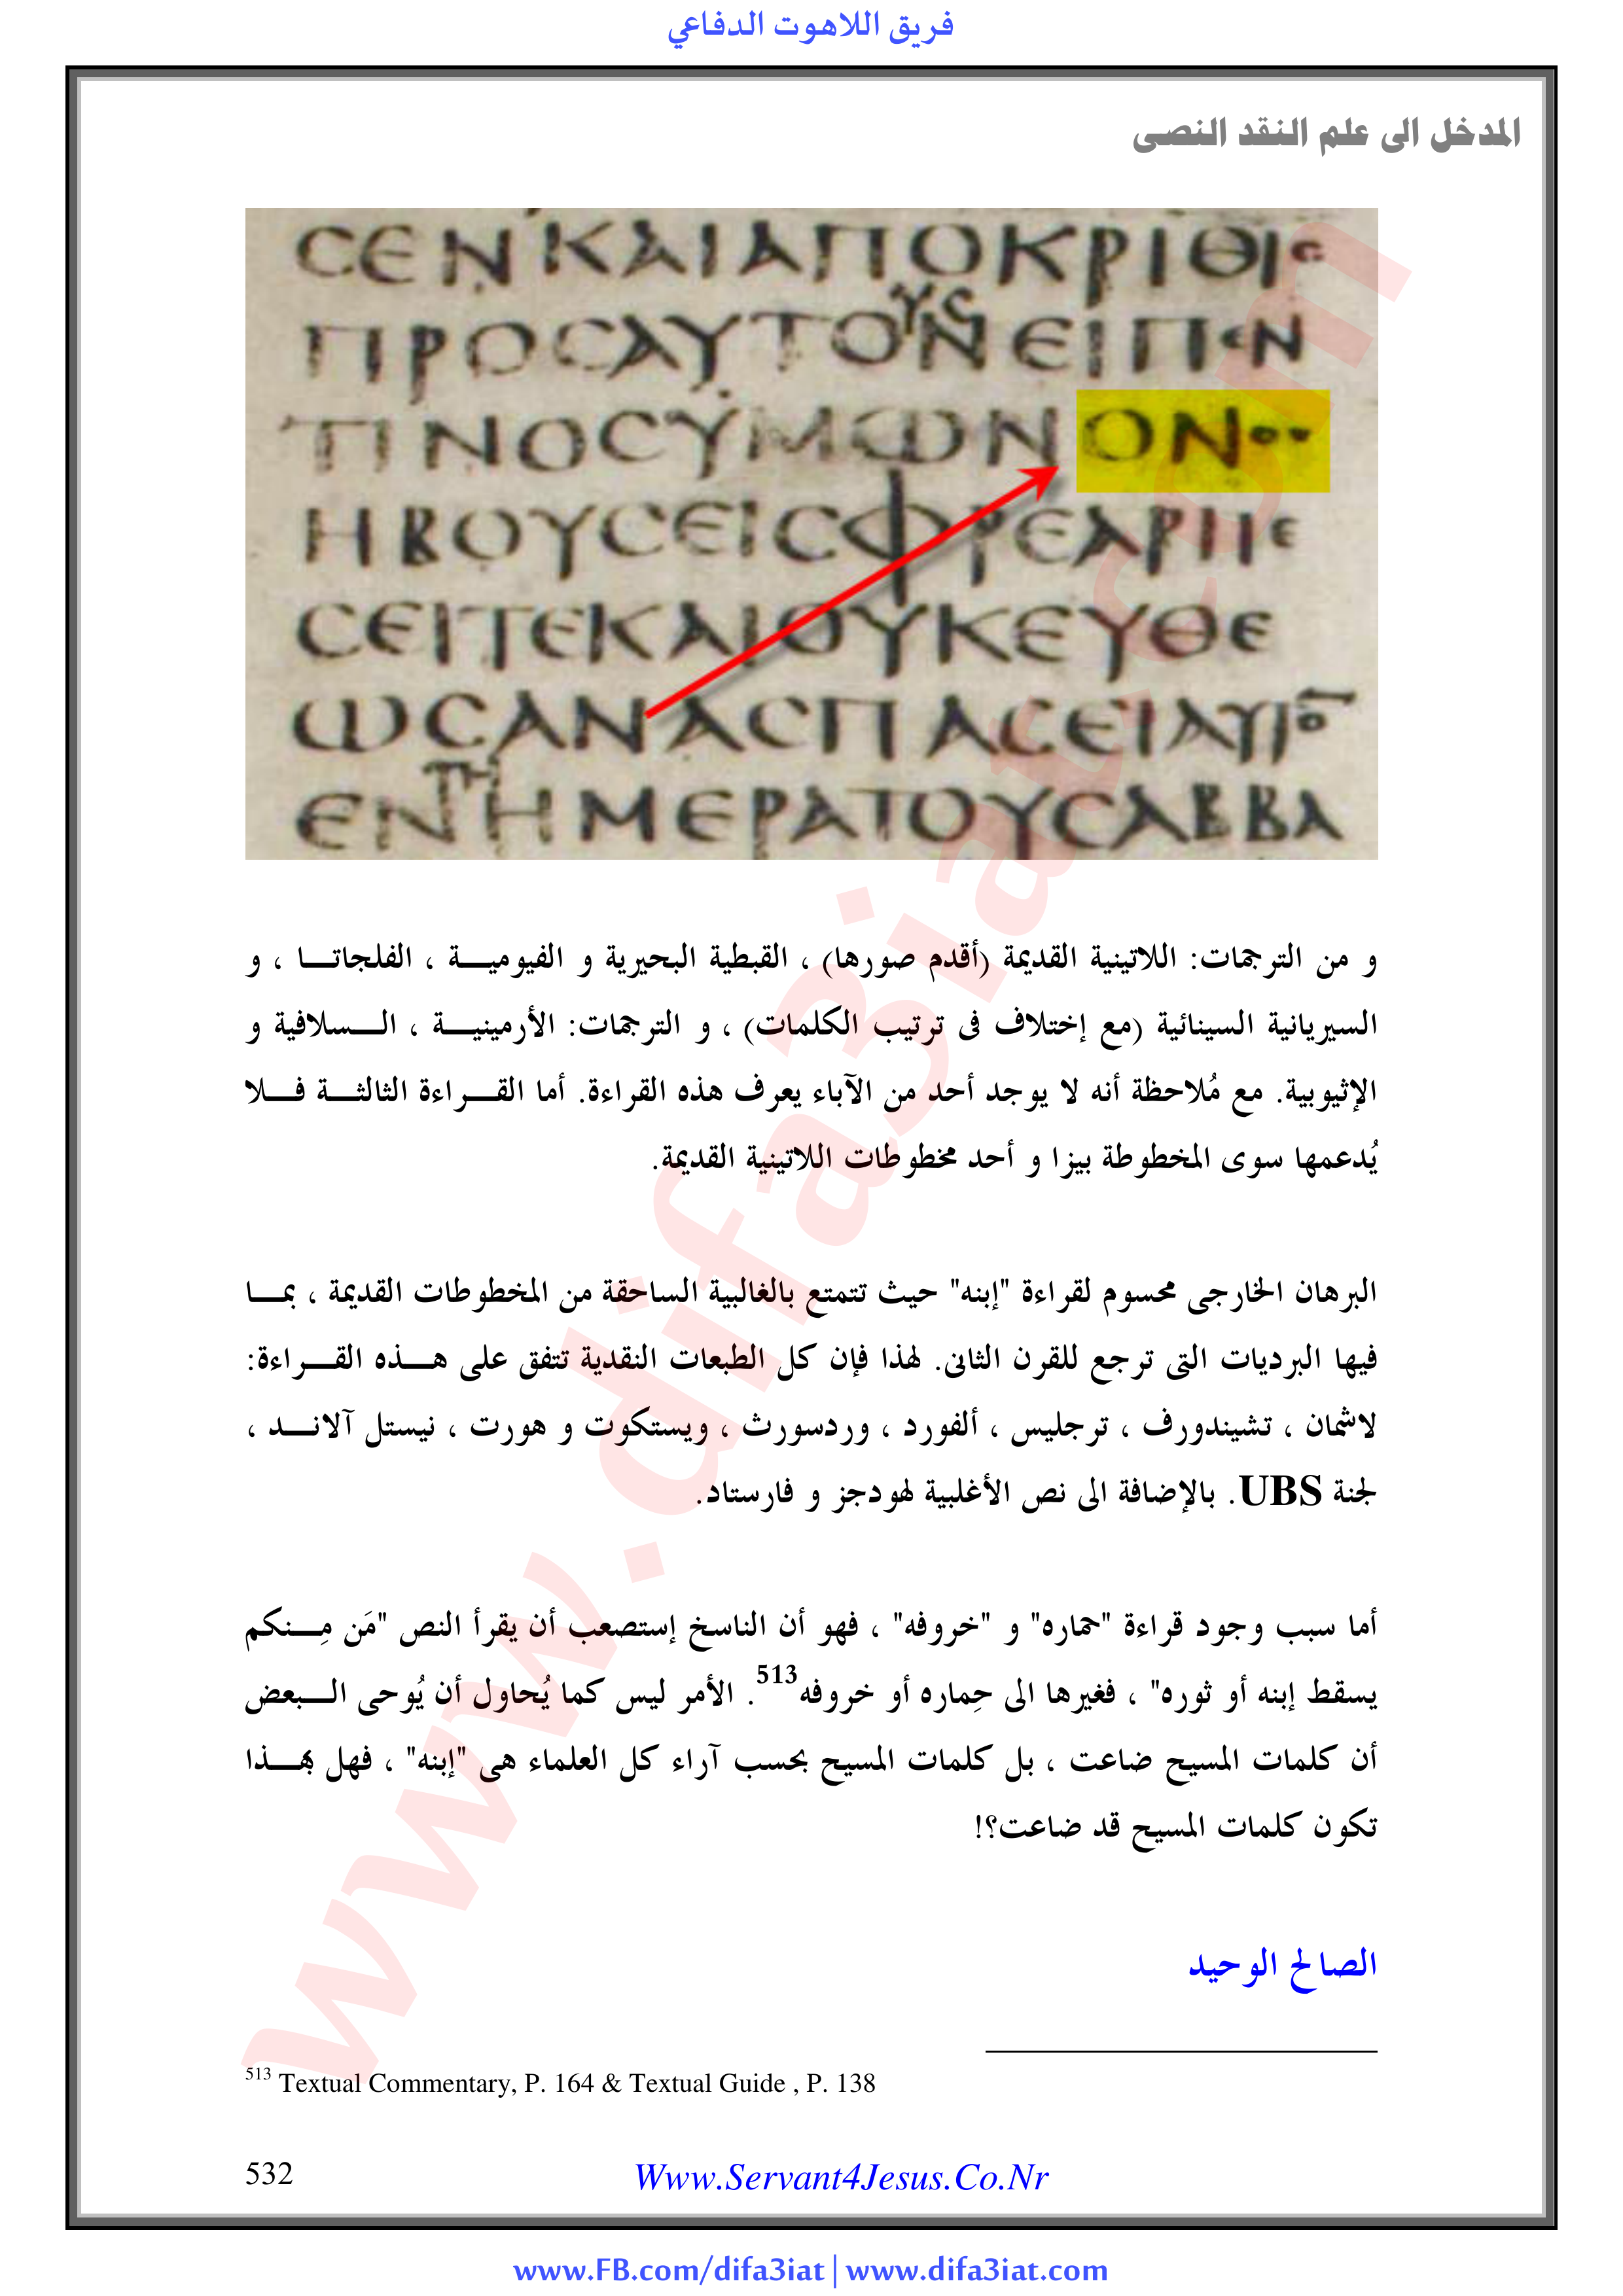 فريق اللاهوت الدفاعي
المدخل الى علم النقد النصى
ϹΕΝΚΑΙΑΠΟΚΡΙΘΙϹ
ΥϹ
ΠΡΟϹΑΥΤΟΝΕΙΠΕΝ
ΤΙΝΟϹΥΜΩΝΟΝΟϹ
ΗΒΟΥϹΕΙϹΦΡΕΑΡΠΕ
ϹΕΙΤΕΚΑΙΟΥΚΕΥΘΕ
ΩϹΑΝΑϹΠΑϹΕΙΑΥΤΟ̅
ΤΗ
ΕΝΤΗΗΜΕΡΑΤΟΥϹΑΒΒΑ
و من الترجمات: اللاتينية القديمة (أقدم صورها) ، القبطية البحيرية و الفيومية ، الفلجاتا ، و
السيريانية السينائية (مع إختلاف فى ترتيب الكلمات) ، و الترجمات: الأرمينية ، السلافية و
الإثيوبية. مع مُلاحظة أنه لا يوجد أحد من الآباء يعرف هذه القراءة. أما القراءة الثالثة فلا
يُدعمها سوى المخطوطة بيزا و أحد مخطوطات اللاتينية القديمة.
البرهان الخارجى محسوم لقراءة "إبنه" حيث تتمتع بالغالبية الساحقة من المخطوطات القديمة ، بما
فيها البرديات التى ترجع للقرن الثانى. لهذا فإن كل الطبعات النقدية تتفق على هذه القراءة:
لاشمان ، تشيندورف ، ترجليس ، ألفورد ، وردسورث ، ويستكوت و هورت ، نيستل آلاند ،
لجنة UBS. بالإضافة الى نص الأغلبية لهودجز و فارستاد.
أما سبب وجود قراءة "حماره" و "خروفه" ، فهو أن الناسخ إستصعب أن يقرأ النص "مَن مِنكم
يسقط إبنه أو ثوره" ، فغيرها الى حِماره أو خروفه513. الأمر ليس كما يُحاول أن يُوحى البعض
أن كلمات المسيح ضاعت ، بل كلمات المسيح بحسب آراء كل العلماء هى "إبنه" ، فهل بهذا
تكون كلمات المسيح قد ضاعت؟!
الصالح الوحيد
513 Textual Commentary, P. 164 & Textual Guide , P. 138
532
Www.Servant4Jesus.Co.Nr
www.FB.com/difa3iat | www.difa3iat.com
www.difa3iat.com